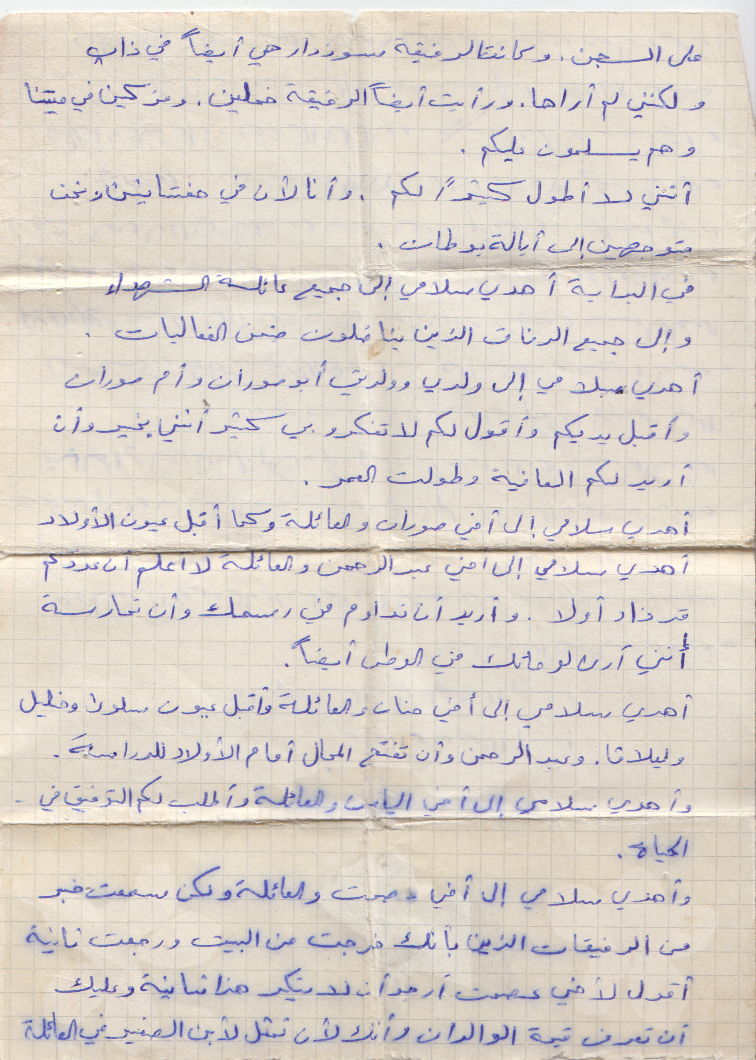 على السجن. وكانت الرفيقة سوزدار هي أيضاً في ذاب
ولكنني لم أراها. ورأيت أيضاً الرفيقة خملين. ومزكين في ميتنا
وهم يسلمون عليكم.
أنني لا أطول كثيراً لكم. وأنا لأن في حفتانين ونحن
متوجهين إلى أيالة بوطان.
في البداية أهدي سلامي إلى جميع عائلة الشهداء
وإلى جميع الرفاق الذين يناضلون ضمن الفعاليات.
أهدي سلامي إلى ولدي وولدتي أبو موران وأم موران
وأقبل يديكم وأقول لكم لا تفكرو بي كثير أنني بخير وأن
أريد لكم العافية وطولت العمر.
أهدي سلامي إلى أخي موران والعائلة وكما أقبل عيون الأولاد
أهدي سلامي إلى أخي عبد الرحمن والعائلة لا أعلم أن عددكم
قد زاد أولا. وأريد أن تداوم في رسمك وأن تمارسة
أنني أرى لوحاتك في الوطن أيضاً.
أهدي سلامي إلى أخي حنان والعائلة وأقبل عيون سلوا وخليل
وليلاثا. وعبد الرحمن وأن تفتح المجال أمام الأولاد للدراسة.
وأهدي سلامي إلى أخي الياس والعائلة وأطلب لكم التوفيق في
الحياة.
وأهدي سلامي إلى أخي عصمت والعائلة ولكن سمعت خبر
من الرفيقات الذين بأنك خرجت من البيت ورجعت ثانية
أقول لأخي عصمت أرجو أن لا يتكرر هذا ثانية وعليك
أن تعرف قيمة الوالدان وأنك لأن تمثل لأبن الصغير في العائلة